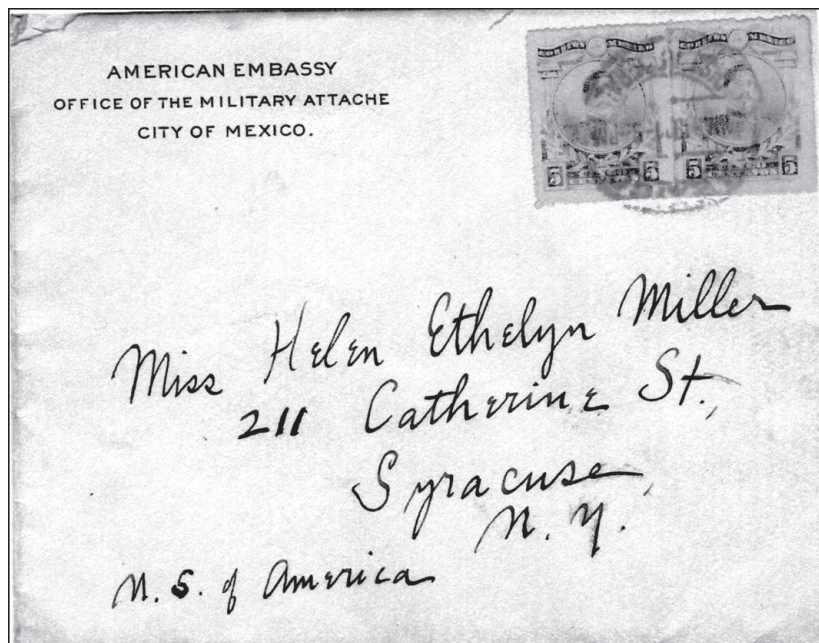 AMERICAN EMBASSY
OFFICE OF THE MILITARY ATTACHE
CITY OF MEXICO.
CORREOS MEXICO CORREOS MEXICO
5 5 5 5
Miss Helen Ethelyn Miller
211 Catherine St.,
Syracuse,
N. Y.
U. S. of America